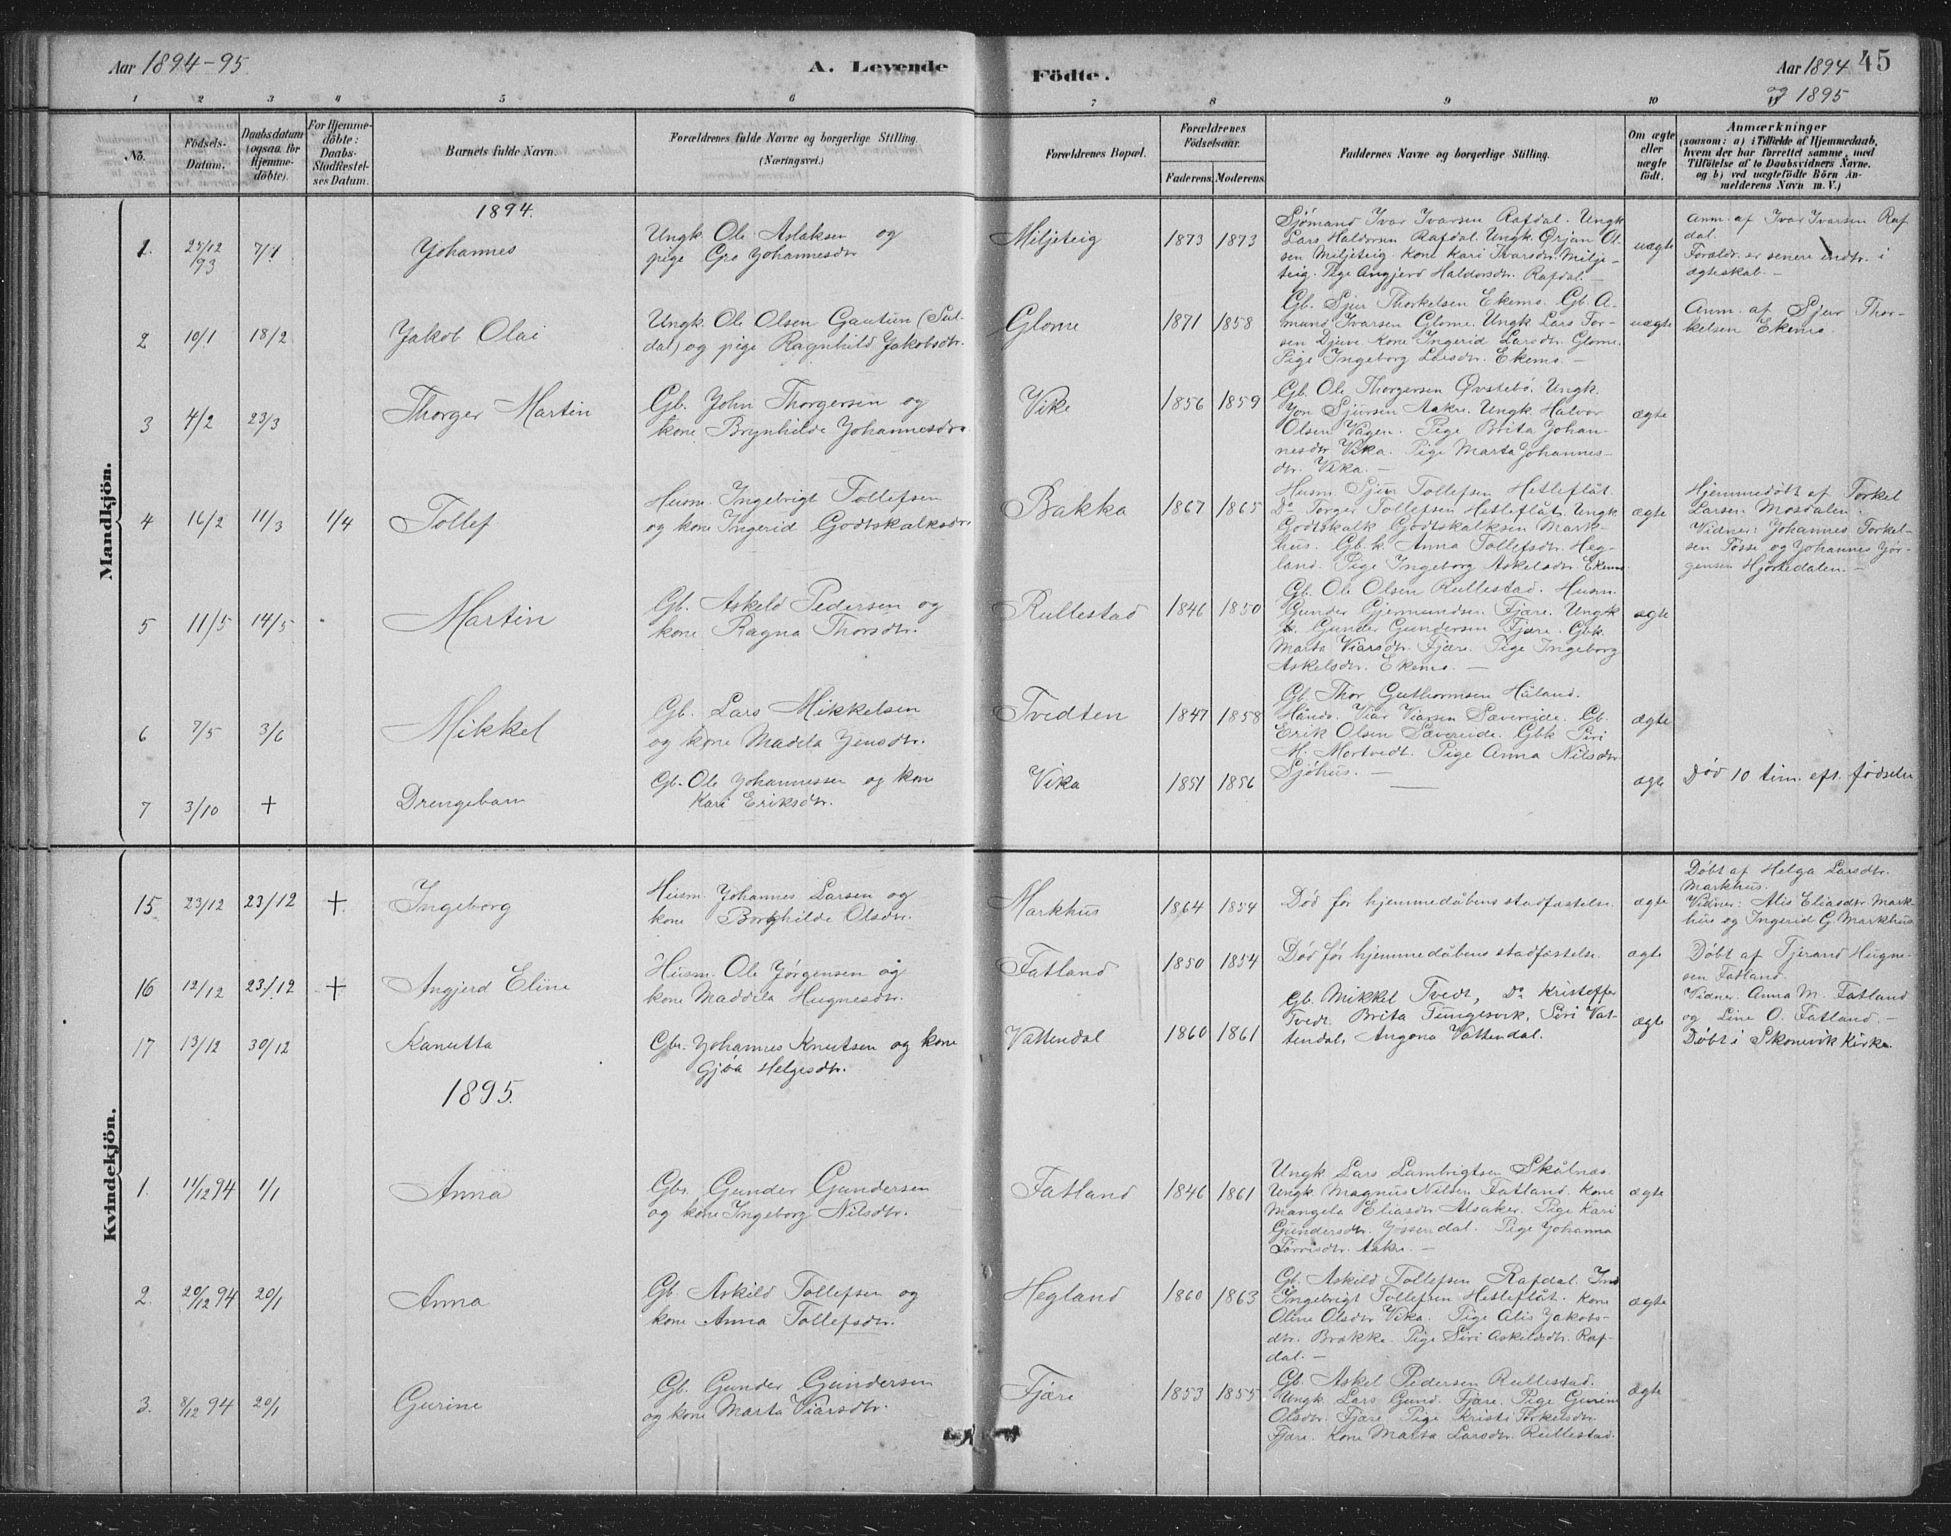 Aar 1894-95.
A. Levende
Födte.
Aar 1894 45
og 1895
1 2 3 4 5 6 7 8 9 10 11
No.
Födsels-Datum.
Daabsdatum (ogsaa for Hjemme-döbte).
For Hjemme-döbte: Daabs-Stadfæstel-ses Datum.
Barnets fulde Navn.
Forældrenes fulde Navne og borgerlige Stilling. (Næringsvei.)
Forældrenes Bopæl.
Forældrenes Födselsaar.
Faderens. Moderens.
Faddernes Navne og borgerlige Stilling.
Om ægte eller uægte födt.
Anmærkninger
(saasom: a) i Tilfælde af Hjemmedaab, hvem der har forrettet samme, med Tilföielse af to Daabsvidners Navne. og b) ved uægtefödte Börn Anmelderens Navn m. V.)
Mandkjön.
1894.
1. 27/12 93 7/1 Johannes
Ungk. Ole Aslaksen og
pige Gro Johannesdtr
Miljeteig 1873 1873
Sjömand Ivar Ivarsen Rafdal. Ungk
Lars Haldorsen Rafdal. Ungk. Ørjan Ol
sen Miljeteig. Kone Kari Ivarsdtr. Milje-
teig. Pige Angjerd Haldorsdtr. Rafdal. -
uægte
Anm. af Ivar Ivarsen Raf
dal.
Foraldr. er senere indtr. i
ægteskab. -
2 10/1 18/2 Jakob Olai
Ungk. Ole Olsen Gautun (Sul-
dal) og pige Ragnhild Jakobsdtr.
Glome 1871 1858
Gb. Sjur Thorkelsen Ekemo. Gb. A-
mund Ivarsen Glome. Ungk Lars Tor-
sen Djuve. Kone Ingerid Larsdtr. Glome.
Pige Ingeborg Larsdtr. Ekemo. -
uægte
Anm. af Sjur Thor-
kelsen Ekemo.
3 4/2 23/3 Thorger Martin
Gb. John Thorgersen og
kone Brynhilde Johannesdtr.
Vike 1856 1859
Gb. Ole Thorgersen Øvstebö. Ungk.
Jon Sjursen Aakre. Ungk. Halvor
Olsen Vågen. Pige Brita Johan-
nesdtr. Vika. Pige Marta Johannes-
dtr. Vika. -
ægte
4 16/2 11/3 1/4 Tollef
Husm. Ingebrigt Tollefsen
og kone Ingerid Godtskalksdtr
Bakka 1867 1865
Husm. Sjur Tollefsen Hetleflåt.
Do Torger Tollefsen Hetleflåt. Ungk
Godtskalk Godtskalksen Mark-
hus. Gb.k. Anna Tollefsdtr. Heg-
land. Pige Ingeborg Askelsdtr. Ekemo
ægte
Hjemmedöbt af Torkel
Larsen Mosdalen.
Vidner: Johannes Torkel-
sen Tösse og Johannes Jör-
gensen Hjortedalen. -
5 11/5 14/5 Martin
Gb. Askeld Pedersen og
kone Ragna Thorsdtr.
Rullestad 1846 1850
Gb. Ole Olsen Rullestad. Husm.
Gunder Gjermundsen Fjære. Ungk
Gunder Gundersen Fjære. Gbk.
Marta Viarsdtr. Fjære. Pige Ingeborg
Askelsdtr. Ekemo. -
ægte
6 7/5 3/6 Mikkel
Gb. Lars Mikkelsen
og kone Madela Jensdtr.
Tvedten 1847 1858
Gb. Thor Guthormsen Håland.
Håndv. Viar Viarsen Sævereide. Gb.
Erik Olsen Sævereide. Gbk Siri
M. Mortvedt. Pige Anna Nilsdtr
Sjöhus. -
ægte
7 3/10 + Drengebarn
Gb. Ole Johannessen og kone
Kari Eriksdtr.
Vika 1851 1856
ægte
Död 10 tim. eft. födselen
Kvindekjön.
15 23/12 23/12 + Ingeborg
Husm. Johannes Larsen og
kone Borghilde Olsdtr.
Markhus 1864 1854
Död för hjemmedåbens stadfæstelse.
ægte
Döbt af Helga Larsdtr.
Markhus.
Vidner: Alis Eliasdtr. Mark-
hus og Ingerid G. Markhus
16 12/12 23/12 + Angjerd Eline
Husm. Ole Jörgensen og
kone Maddela Hugnesdtr.
Fatland 1850 1854
Död för hjemmedåbens stadfæstelse.
ægte
Döbt af Tjerand Hugne-
sen Fatland.
Vidner. Anna M. Fatland
og Line O. Fatland. -
17 13/12 30/12 Kanutta
Gbr. Johannes Knutsen og kone
Gjöa Helgesdtr.
Vattendal 1860 1861
Gb. Mikkel Tvedt, Do Kristoffer
Tvedt. Brita Tungesvik, Siri Vat-
tendal, Angona Vattendal.
ægte
Döbt i Skonevik Kirke.
1895.
1. 11/12 94 1/1 Anna
Gbr. Gunder Gundersen
og kone Ingeborg Nilsdtr.
Fatland 1846 1861
Ungk Lars Lambrigtsen Skålnæs.
Ungk. Magnus Nilsen Fatland. Kone
Mangela Eliasdtr Alsaker. Pige Kari
Gundersdtr. Jössendal. Pige Johanna
Torrisdtr. Aakre. -
ægte
2. 20/12 94 20/1 Anna
Gb. Askild Tollefsen og
kone Anna Tollefsdtr.
Hegland 1860 1863
Gb. Askild Tollefsen Rafdal. Ind
Ingebrigt Tollefsen Hetleflåt. Kone
Oline Olsdtr Vika. Pige Alis Jakobs-
dtr. Brakke. Pige Siri Askildsdtr. Raf-
dal. -
ægte
3. 8/12 94 20/1 Gurine
Gb. Gunder Gundersen
og kone Marta Viarsdtr.
Fjære 1853 1855
Gb. Askel Pedersen Rullestad.
Ungk. Lars Gund. Fjære. Pige Gurine
Olsdtr. Fjære. Pige Kristi Torkelsdtr.
Fjære. Kone Marta Larsdtr. Rullestad.
ægte